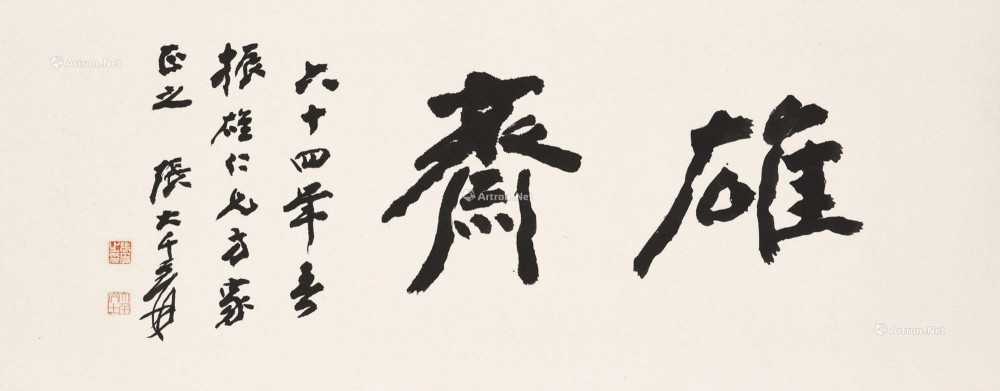 雄齋
六十四年春
振雄仁兄方家
正之 張大千爰
Artron.Net
Artron.Net
Artron.Net